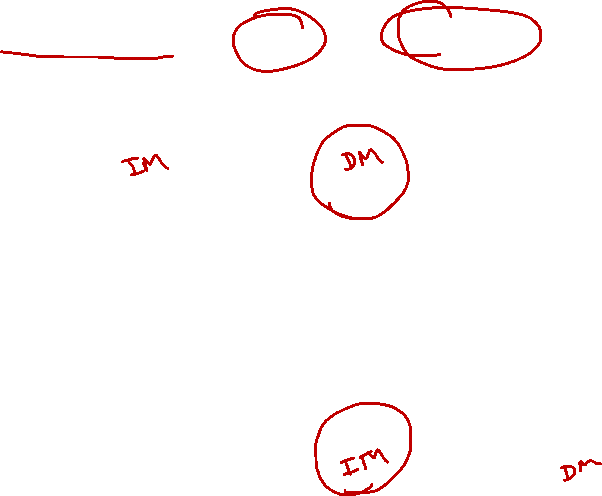 IM DM
IM DM